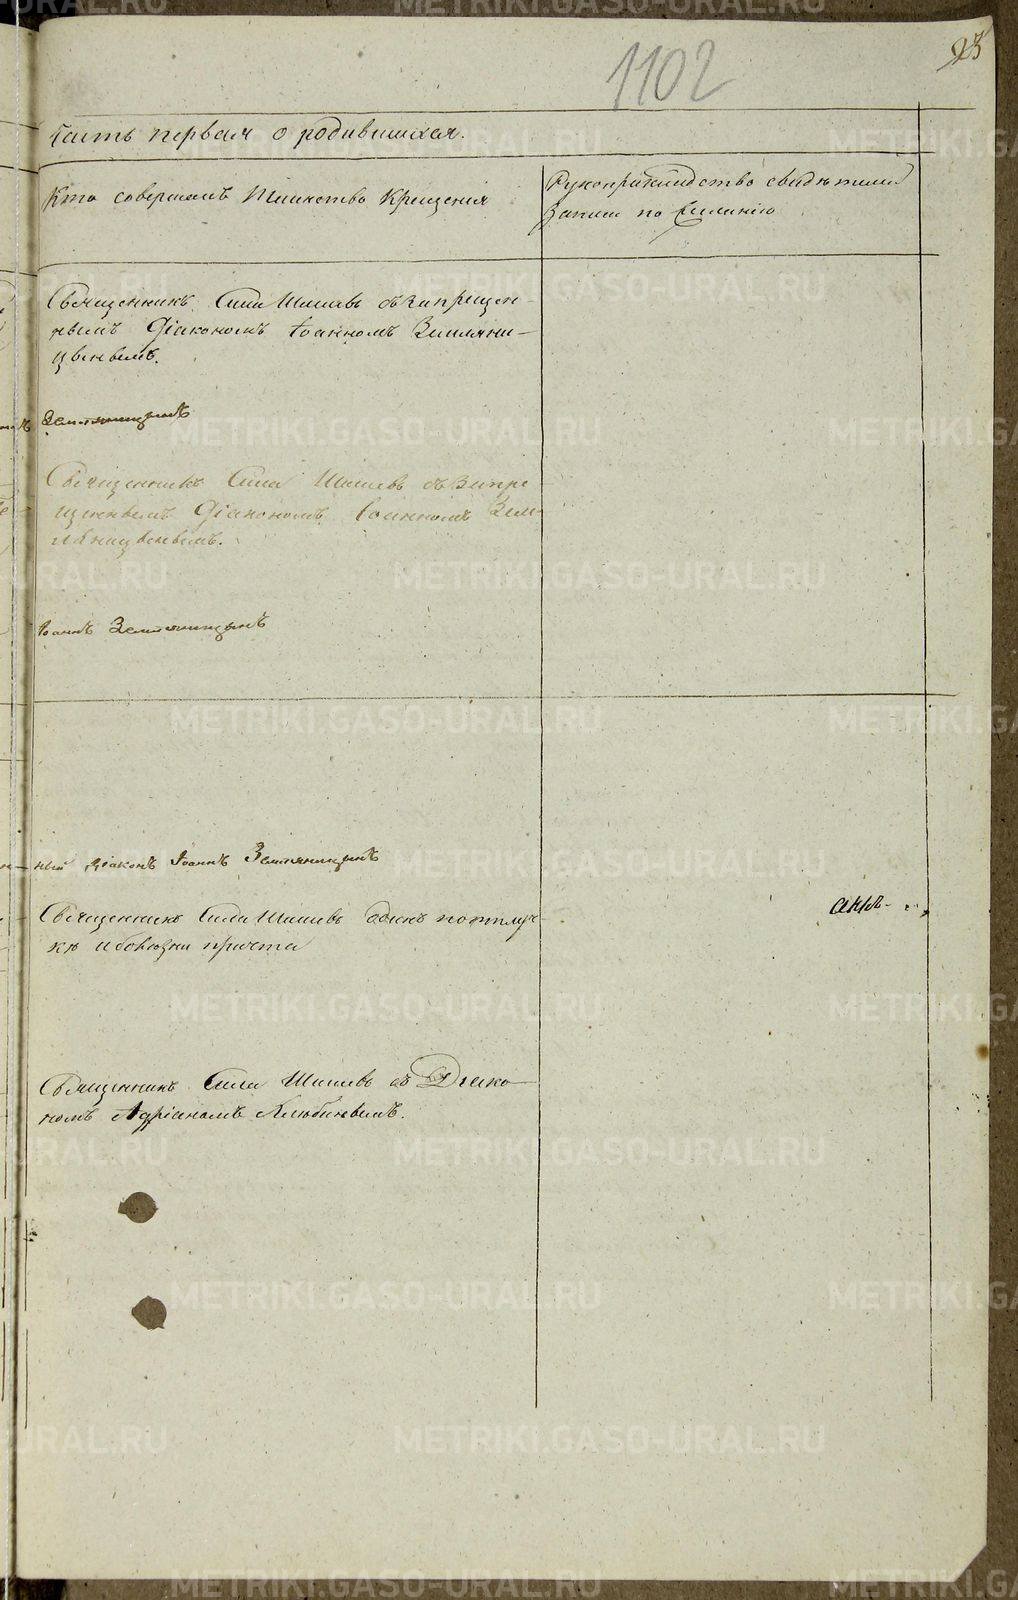 1102
93
Часть первая о родившихся.
Кто совершалъ Таинство Крещенія
Рукоприкладство свидѣтелей
записи по желанію
Священникъ Сила Шишевъ съ запрещен-
нымъ Діакономъ Іоанномъ Земляни-
цынымъ.
Земляницынъ
Священникъ Сила Шишевъ съ Запре
щеннымъ Діакономъ Іоанномъ Зем-
ляницынымъ.
Іоаннъ Земляницынъ
ный діаконъ Іоаннъ Земляницынъ
Священникъ Сила Шишевъ одинъ по отлуч-
кѣ и болѣзни причта
Священникъ Сила Шишевъ съ Діако-
номъ Адріаномъ
METRIKI.GASO-URAL.RU